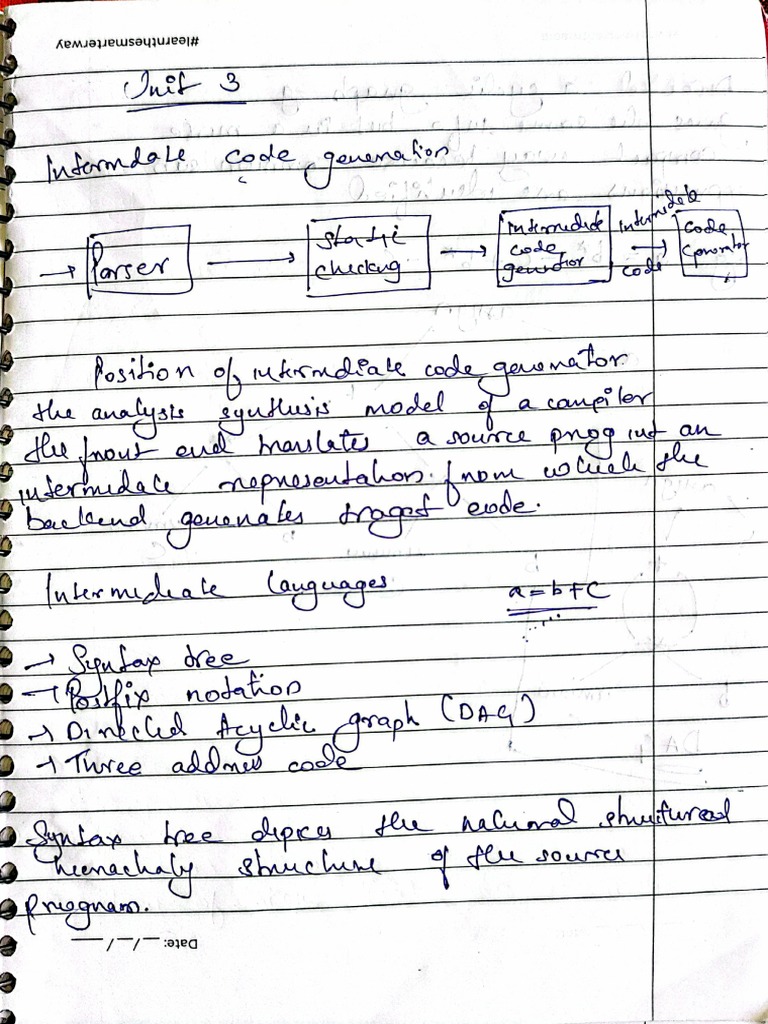 #learnthesmarterway
Unit 3
Intermdate code generation
→ Parser → static checking → intermediate code generator → intermediate code → code generator
Position of intermediate code generator.
the analysis synthesis model of a compiler
the front end translates a source prog int an
intermidate representation. from which the
backend generates traget code.
Intermediate languages
a = b + c
→ Syntax tree
→ Postfix notation
→ Directed Acyclic graph (DAG)
→ Three address code
Syntax tree depices the natural structured
heirachaly structure of the source
program.
Date: __/__/__